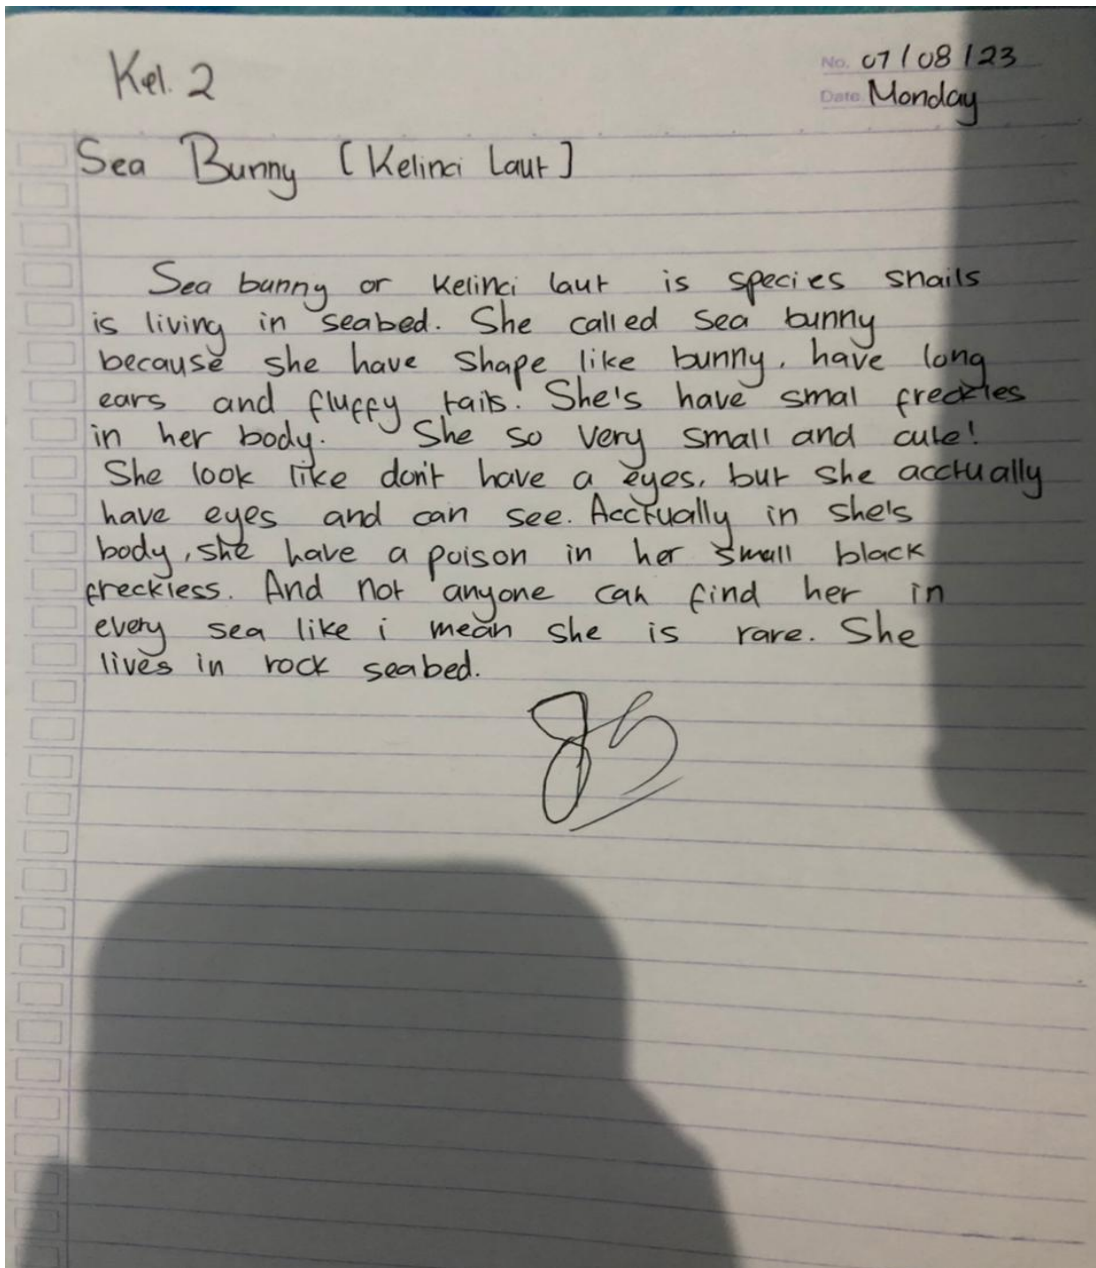 Kel. 2
No. 07/08/23
Date Monday
Sea Bunny [Kelinci Laut]
Sea bunny or Kelinci laut is species snails
is living in seabed. She called sea bunny
because she have shape like bunny, have long
ears and fluffy tails. She's have smal freckles
in her body. She so very small and cute!
She look like don't have a eyes, but she acctually
have eyes and can see. Acctually in she's
body, she have a poison in her small black
freckless. And not anyone can find her in
every sea like i mean she is rare. She
lives in rock seabed.
85